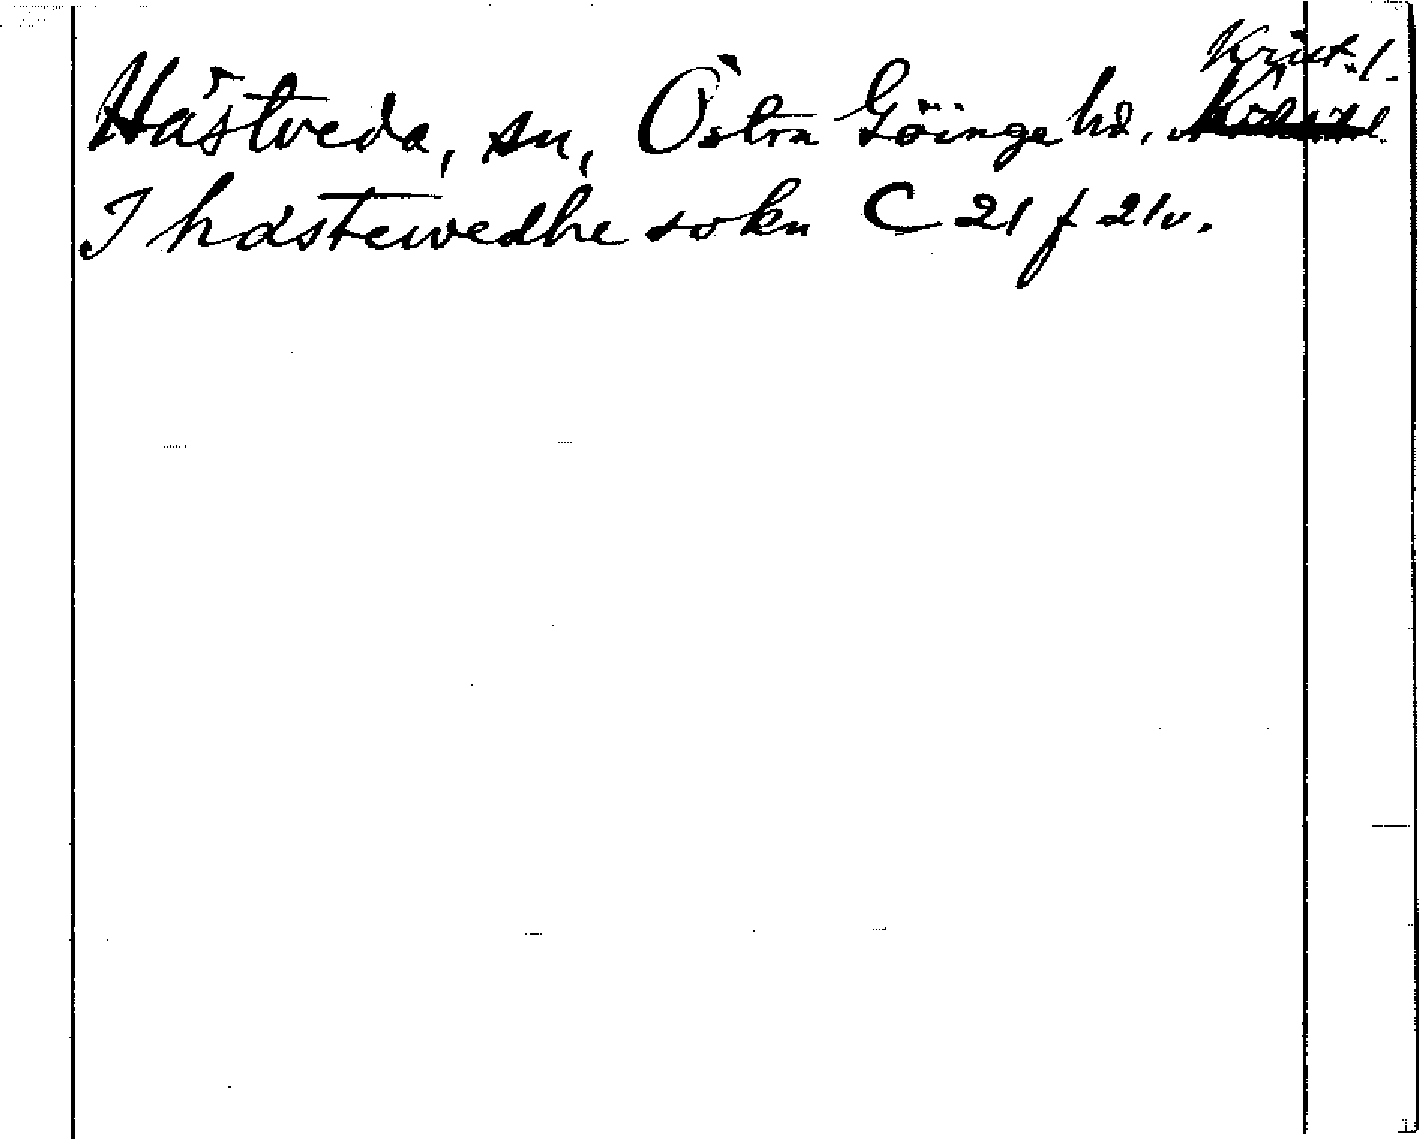 Hästveda, sn, Östra Göinge hd, Krist. l.
I hastewedhe sokn C 21 f 21v.